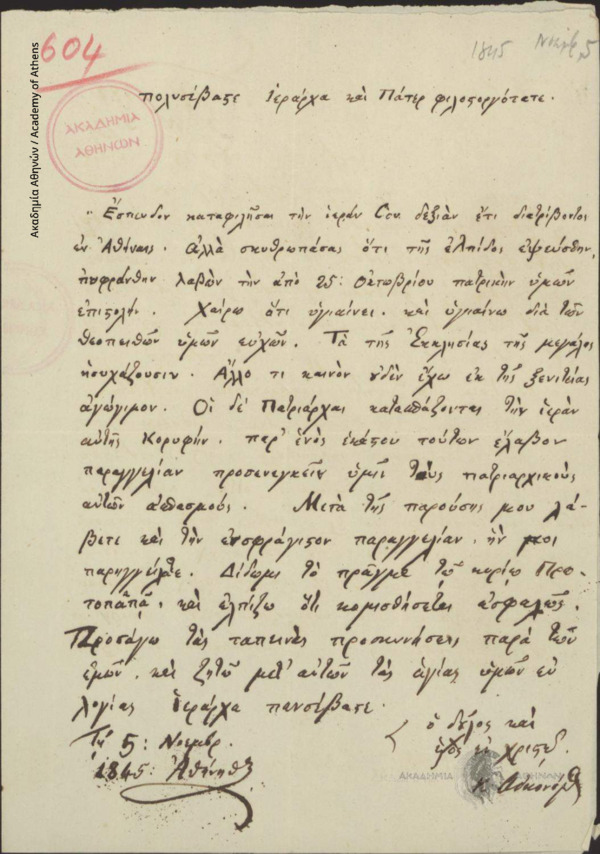 604
1845 Νοεμβ. 5
Ακαδημία Αθηνών / Academy of Athens
ΑΚΑΔΗΜΙΑ
ΑΘΗΝΩΝ
πολυσέβαστε Ἱεράρχα καὶ Πάτερ φιλοστοργότατε.
Ἔσπευδον καταφιλῆσαι τὴν ἱεράν Σου δεξιὰν ἔτι διατρίβοντος
ἐν Ἀθήναις. ἀλλὰ σκυθρωπάσας ὅτι τῆς ἐλπίδος ἐψεύσθην,
ηὐφράνθην λαβὼν τὴν ἀπὸ 25: Οκτωβρίου πατρικὴν ὑμῶν
ἐπιστολήν. Χαίρω ὅτι ὑγιαίνει. καὶ ὑγιαίνω διὰ τῶν
θεοπειθῶν ὑμῶν εὐχῶν. Τὰ τῆς Ἐκκλησίας τῆς μεγάλης
ἡσυχάζουσιν. Ἄλλο τι καινὸν οὐδὲν ἔχω ἐκ τῆς ξενιτείας
ἀγώγιμον. Οἱ δὲ Πατριάρχαι κατασπάζονται τὴν ἱερὰν
αὐτῆς Κορυφήν. παρ' ἑνὸς ἑκάστου τούτων ἔλαβον
παραγγελίαν προσενεγκεῖν ὑμῖν τοὺς πατριαρχικοὺς
αὐτῶν ἀσπασμούς. Μετὰ τῆς παρούσης μου λά-
βετε καὶ τὴν ἐνσφράγιστον παραγγελίαν, ἣν μοι
παρηγγείλατε. Δίδωμι τὸ πρᾶγμα τῷ κυρίῳ Πρω-
τοπαπᾷ, καὶ ἐλπίζω ὅτι κομισθήσεται ἀσφαλῶς.
Προσάγω τὰς ταπεινὰς προσκυνήσεις παρὰ τῶν
ἐμῶν, καὶ ζητῶ μετ' αὐτῶν τὰς ἁγίας ὑμῶν εὐ
λογίας Ἱεράρχα πανσέβαστε.
Τῇ 5: Νοεμβρ.
1845: Ἀθήνηθεν
ὁ δοῦλος καὶ
ἐν Χριστῷ.
ΑΚΑΔΗΜΙΑ ΑΘΗΝΩΝ
Κ. Οἰκονόμος